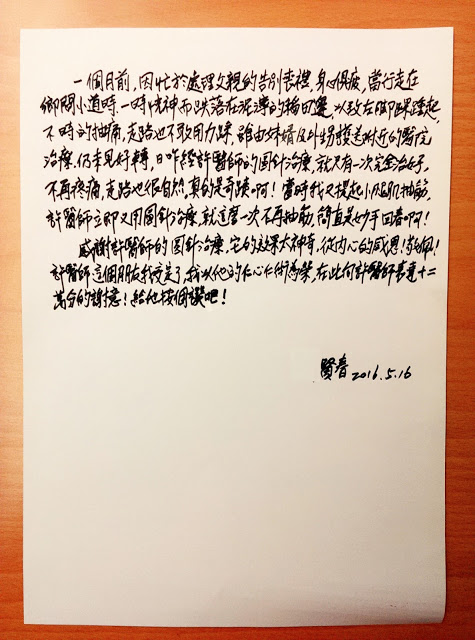 一個月前，因忙於處理父親的告別喪禮，身心俱疲，當行走在
鄉間小道時，一時恍神而跌落在泥濘的稻田裏，以致左腳踝腫起，
不時的抽痛，走路也不敢用力踩，雖由妹婿及外甥護送附近的醫院
治療，仍未見好轉，日昨經許醫師的圓針治療，就只有一次完全治好，
不再疼痛，走路也很自然，真的是奇蹟啊！當時我又提起小腿肌抽筋，
許醫師立即又用圓針治療，就這麼一次不再抽筋，簡直是妙手回春啊！
感謝許醫師的圓針治療，它的效果太神奇，從內心的感恩！敬佩！
許醫師這個朋友我交定了，我以他的仁心仁術為榮，在此向許醫師表達十二
萬分的謝意！給他按個讚吧！
賢春 2016.5.16